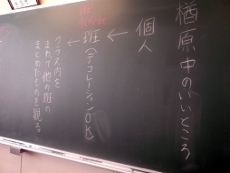 楢原中のいいところ
個人
↓
班(デコレーションOK)
↓
クラス内を
まわって他の班の
まとめたものを観る。